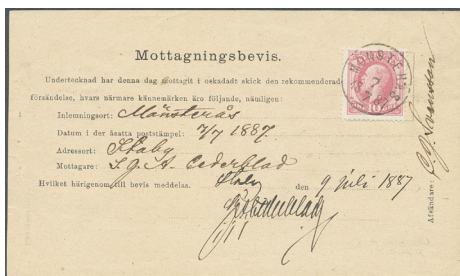 Mottagningsbevis.
Undertecknad har denna dag mottagit i oskadadt skick den rekommenderade
försändelse, hvars närmare kännemärken äro följande, nämligen:
Inlemningsort: Mönsterås
Datum i der åsatta poststämpel: 7/7 1887.
Adressort: Staby
Mottagare: A. Cederblad
Hvilket härigenom till bevis meddelas.
Staby den 9 juli 1887
Cederblad
Afsändare: Svensson
MÖNSTERÅS
7
10